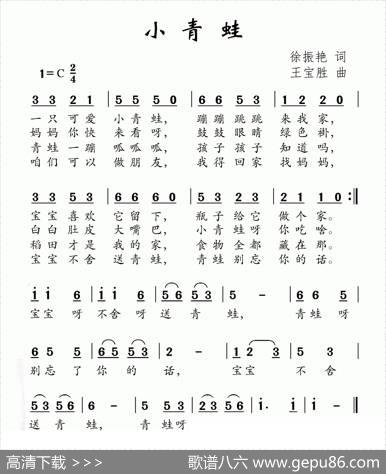 小青蛙
徐振艳 词
1=C 2/4
王宝胜 曲
3 3 2 1 | 5 5 5 0 | 6 6 5 3 | 1 2 2 0 |
一只可爱 小青蛙， 蹦蹦跳跳 来我家，
妈妈你快 来看呀， 鼓鼓眼睛 绿色褂，
青蛙一蹦 呱呱呱， 孩子孩子 知道吗，
咱们可以 做朋友， 我得回家 找妈妈，
3 5 2 3 | 6 6 6 0 | 5 5 2 3 | 2 1 1 0 :‖
宝宝喜欢 它留下， 瓶子给它 做个家。
白白肚皮 大嘴巴， 小青蛙呀 你吃啥。
稻田才是 我的家， 食物全都 藏在那。
宝宝不舍 送青蛙， 青蛙别忘 你的话。
i i 6 | i i 6 | 5 6 5 3 | 5 - | 6 i i |
宝宝呀 不舍呀 送青蛙， 青蛙呀
6 5 5 | 6 5 5 3 | 2 - | 1 2 3 | 5 5 |
别忘了 你的话， 宝宝 不舍
5 3 5 6 | 6 - | 2 3 2 6 | i . i | i 0 ‖
送青蛙， 青蛙呀
高清下载 >>>
歌谱八六 www.gepu86.com